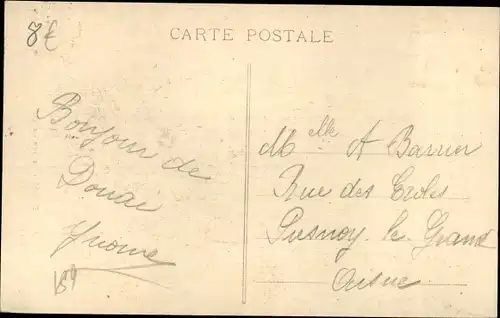 8€
CARTE POSTALE
Bonjour de
Douai
Yvonne
Mlle A Barrier
Rue des Ecoles
Presnoy le Grand
Aisne